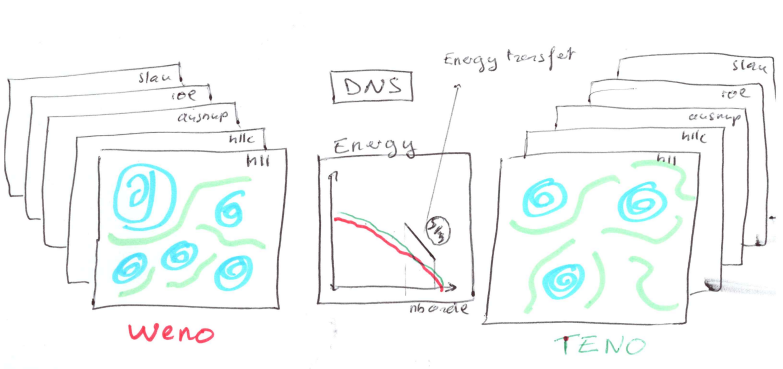 slau
roe
ausmup
hllc
hll
Weno
DNS
Energy transfer
Energy
5/3
nb onde
slau
roe
ausmup
hllc
hll
TENO